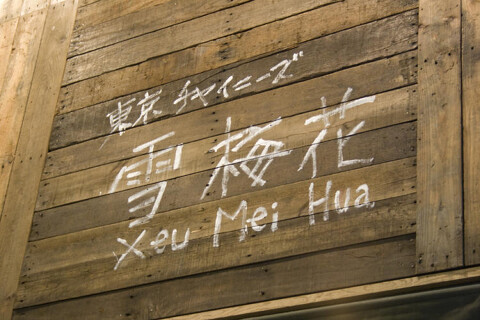 東京 チャイニーズ
雪梅花
Xeu Mei Hua